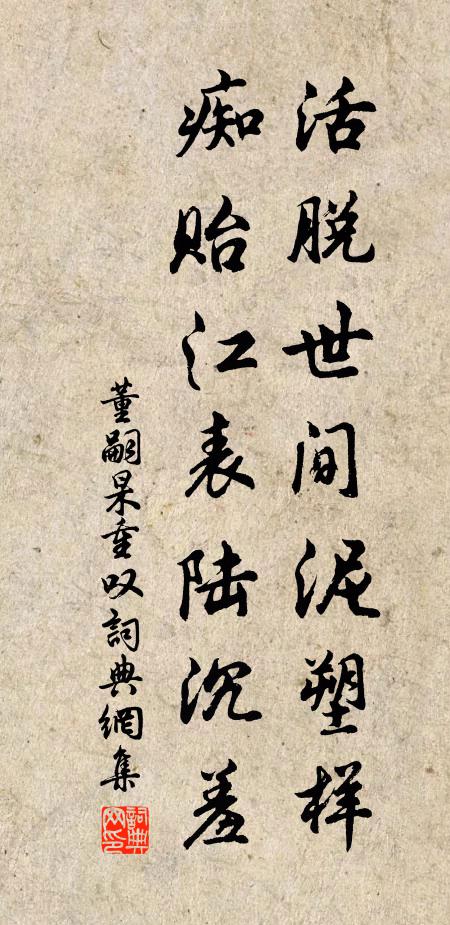 活脱世间泥塑样
痴贻江表陆沉羞
董嗣杲重叹词典網集
詞典网印